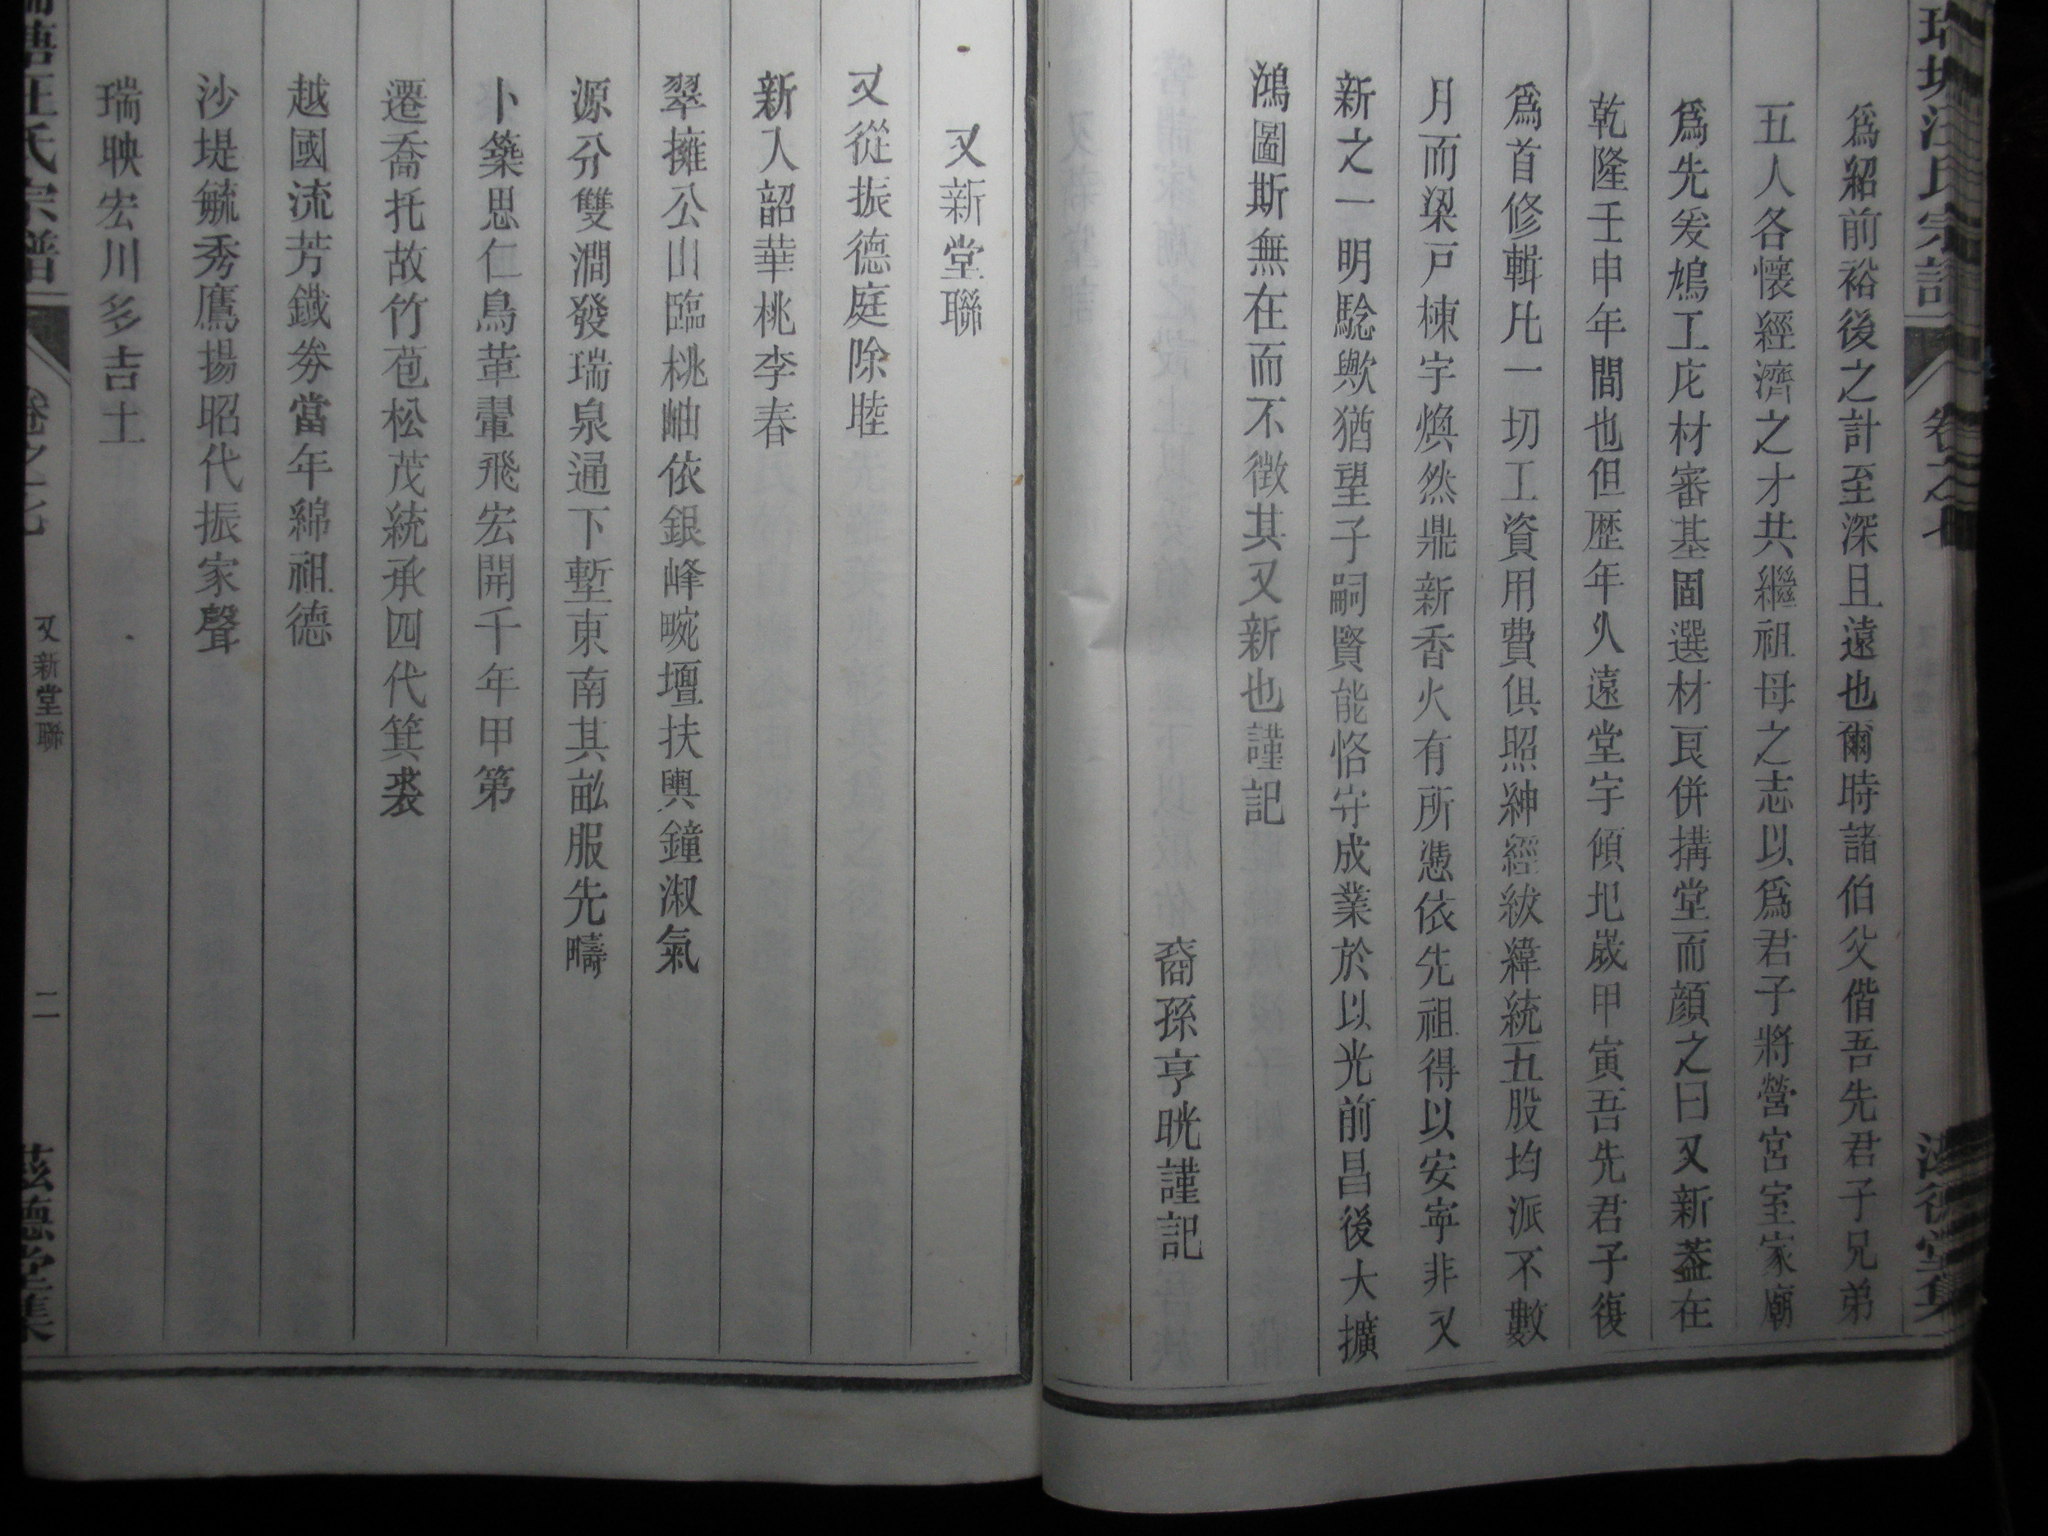 瑞塘汪氏宗譜 卷之七
爲紹前裕後之計至深且遠也爾時諸伯父偕吾先君子兄弟
五人各懷經濟之才共繼祖母之志以爲君子將營宮室家廟
爲先爰鳩工庀材審基固選材良併搆堂而顔之曰又新葢在
乾隆壬申年間也但歷年久遠堂宇傾圯歲甲寅吾先君子復
爲首修輯凡一切工資用費俱照紳經紱緯統五股均派不數
月而梁戸棟宇煥然鼎新香火有所憑依先祖得以安寧非又
新之一明騐歟猶望子嗣賢能恪守成業於以光前昌後大擴
鴻圖斯無在而不徵其又新也謹記
裔孫亨晄謹記
又新堂聯
又從振德庭除睦
新入韶華桃李春
翠擁公山臨桃岫依銀峰畹壇扶輿鐘淑氣
源分雙澗發瑞泉通下塹東南其畝服先疇
卜築思仁鳥革翬飛宏開千年甲第
遷喬托故竹苞松茂統承四代箕裘
越國流芳鐵劵當年綿祖德
沙堤毓秀鷹揚昭代振家聲
瑞映宏川多吉士
瑞塘汪氏宗譜 卷之七 又新堂聯 二 滋德堂集